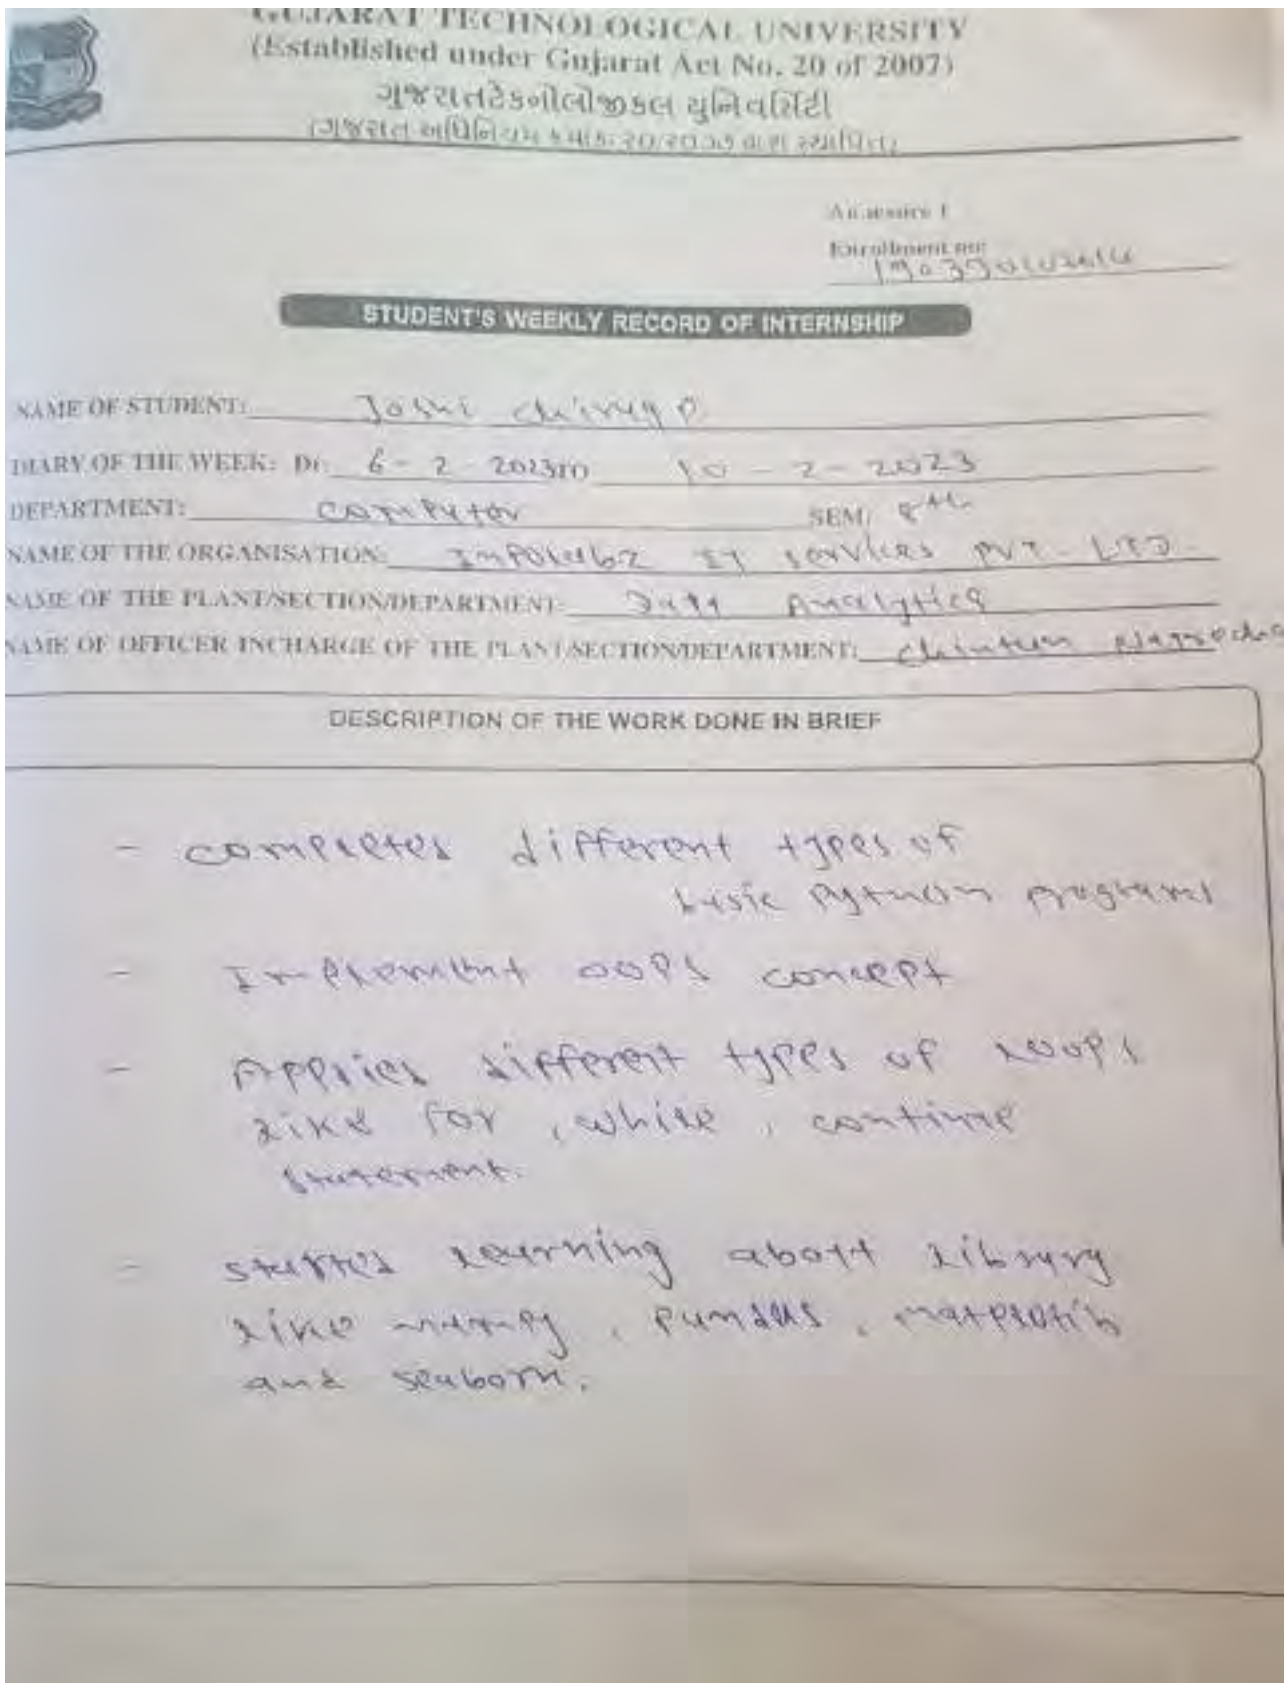 GUJARAT TECHNOLOGICAL UNIVERSITY
(Established under Gujarat Act No. 20 of 2007)
ગુજરાતટેકનોલોજીકલ યુનિવર્સિટી
(ગુજરાત અધિનિયમ ક્રમાંક: ૨૦/૨૦૦૭ દ્વારા સ્થાપિત)
Annexure 1
Enrollment no:
STUDENT'S WEEKLY RECORD OF INTERNSHIP
NAME OF STUDENT: Joshi Chirag P.
DIARY OF THE WEEK: Dt: 6 - 2 - 2023 TO 10 - 2 - 2023
DEPARTMENT: Computer SEM: 8th
NAME OF THE ORGANISATION: IT Services PVT. LTD.
NAME OF THE PLANT/SECTION/DEPARTMENT: Data Analytics
NAME OF OFFICER INCHARGE OF THE PLANT/SECTION/DEPARTMENT: Chintan
DESCRIPTION OF THE WORK DONE IN BRIEF
- completed different types of
basic Python programs
- Implement OOPS concept
- Applied different types of loops
like for, while, continue
statement.
- started learning about library
like numpy, pandas, matplotlib
and seaborn.